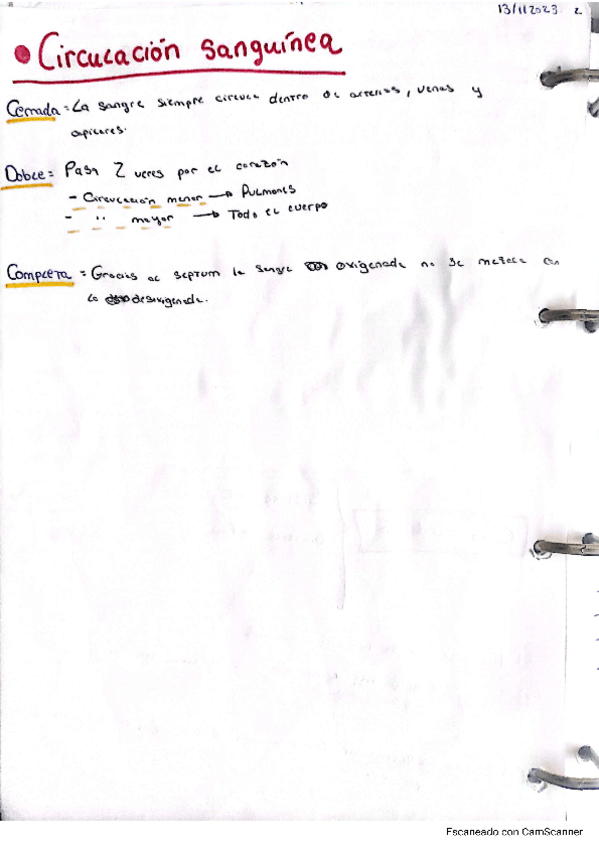 13/11/2023 2
• Circulación sanguínea
Cerrada = La sangre siempre circula dentro de arterias, venas y
apilares.
Doble = Pasa 2 veces por el corazón
- Circulación menor → Pulmones
- " mayor → Todo el cuerpo
Completa = Gracias al septum la sangre oxigenada no se mezcla con
la desoxigenada.
Escaneado con CamScanner